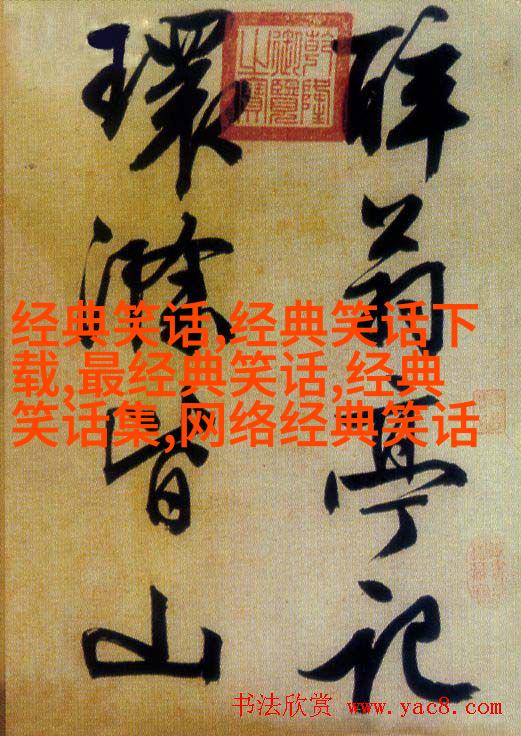 醉翁亭記
環滁皆山
乾隆御覽之寶
经典笑话,经典笑话下
载,最经典笑话,经典
笑话集,网络经典笑话
书法欣赏 www.yac8.com